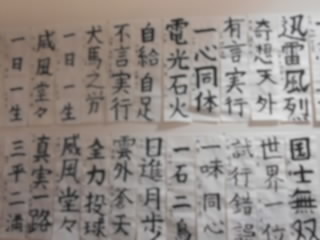 迅雷風烈
奇想天外
有言実行
一心同体
電光石火
自給自足
不言実行
犬馬之労
一日一生
威風堂々
一日一生
国士無双
世界一位
試行錯誤
一味同心
一石二鳥
日進月歩
雲外蒼天
全力投球
威風堂々
真実一路
三平二満